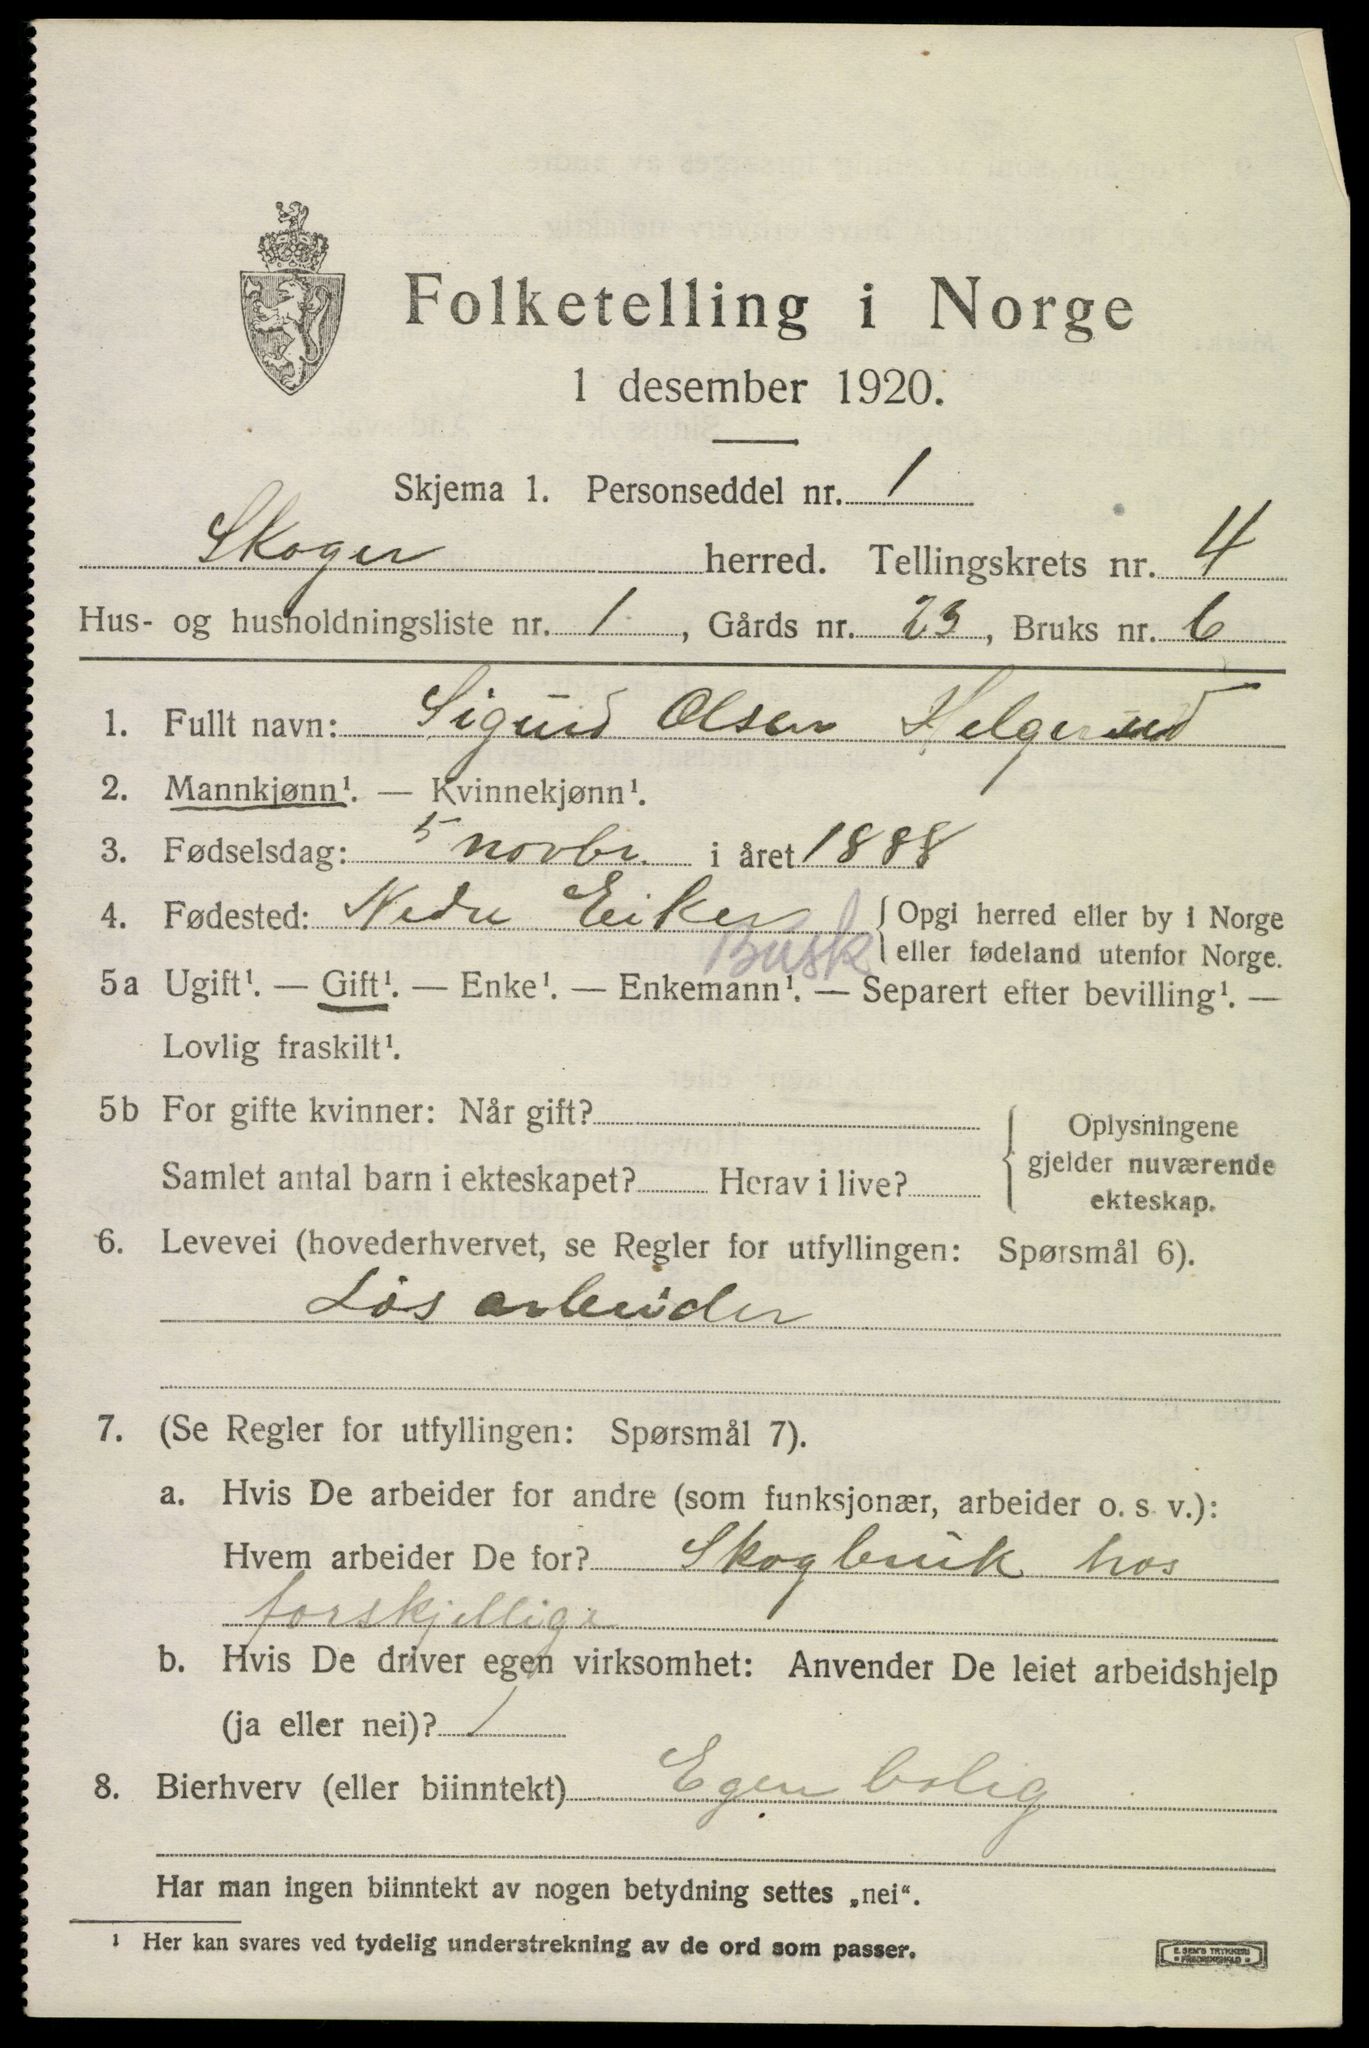 Folketelling i Norge
1 desember 1920.
Skjema 1. Personseddel nr. 1
Skoger herred. Tellingskrets nr. 4
Hus- og husholdningsliste nr. 1, Gårds nr. 23, Bruks nr. 6
1. Fullt navn: Sigurd Olsen Helgerud
2. Mannkjønn¹. — Kvinnekjønn¹.
3. Fødselsdag: 5 novbr. i året 1888
4. Fødested: Nedre Eiker { Opgi herred eller by i Norge
Busk eller fødeland utenfor Norge.
5a Ugift¹. — Gift¹. — Enke¹. — Enkemann¹. — Separert efter bevilling¹. —
Lovlig fraskilt¹.
5b For gifte kvinner: Når gift? { Oplysningene
gjelder nuværende
Samlet antal barn i ekteskapet? Herav i live?
ekteskap.
6. Levevei (hovederhvervet, se Regler for utfyllingen: Spørsmål 6).
Løs arbeider
7. (Se Regler for utfyllingen: Spørsmål 7).
a. Hvis De arbeider for andre (som funksjonær, arbeider o. s. v.):
Hvem arbeider De for? Skogbruk hos
forskjellige
b. Hvis De driver egen virksomhet: Anvender De leiet arbeidshjelp
(ja eller nei)? /
8. Bierhverv (eller biinntekt) Egen bolig
Har man ingen biinntekt av nogen betydning settes „nei“.
¹ Her kan svares ved tydelig understrekning av de ord som passer.
E. SEM'S TRYKKERI
FREDRIKSHALD